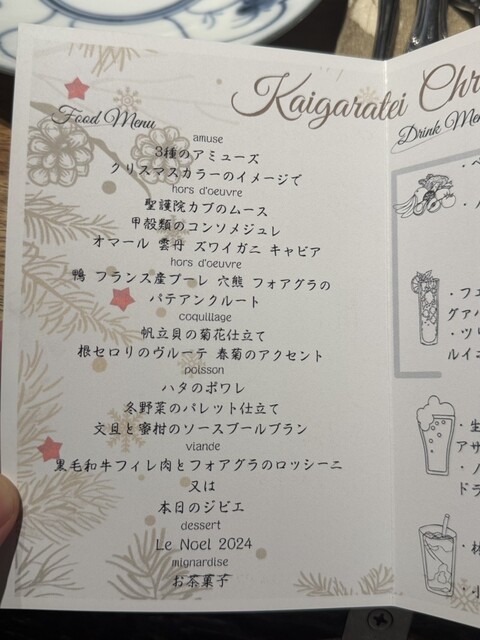 Kaigaratei Chr
Food Menu
amuse
3種のアミューズ
クリスマスカラーのイメージで
hors d'oeuvre
聖護院カブのムース
甲殻類のコンソメジュレ
オマール 雲丹 ズワイガニ キャビア
hors d'oeuvre
鴨 フランス産プーレ 穴熊 フォアグラの
パテアンクルート
coquillage
帆立貝の菊花仕立て
根セロリのヴルーテ 春菊のアクセント
poisson
ハタのポワレ
冬野菜のパレット仕立て
文旦と蜜柑のソースブールブラン
viande
黒毛和牛フィレ肉とフォアグラのロッシーニ
又は
本日のジビエ
dessert
Le Noel 2024
mignardise
お茶菓子
Drink Men
・フェ
グァバ
・ツリ
ルイコ
・生
アサ
・ノ
ドラ